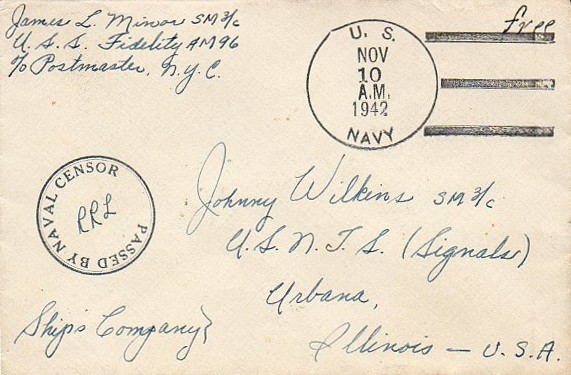 James L. Minor SM 3/c
U.S.S. Fidelity AM96
c/o Postmaster, N.Y.C.
free
U. S.
NOV
10
A.M.
1942
NAVY
PASSED BY NAVAL CENSOR
RRL
Johnny Wilkins SM 3/c
U.S.N.T.S. (Signals)
Urbana,
Illinois — U.S.A.
Ship's Company}